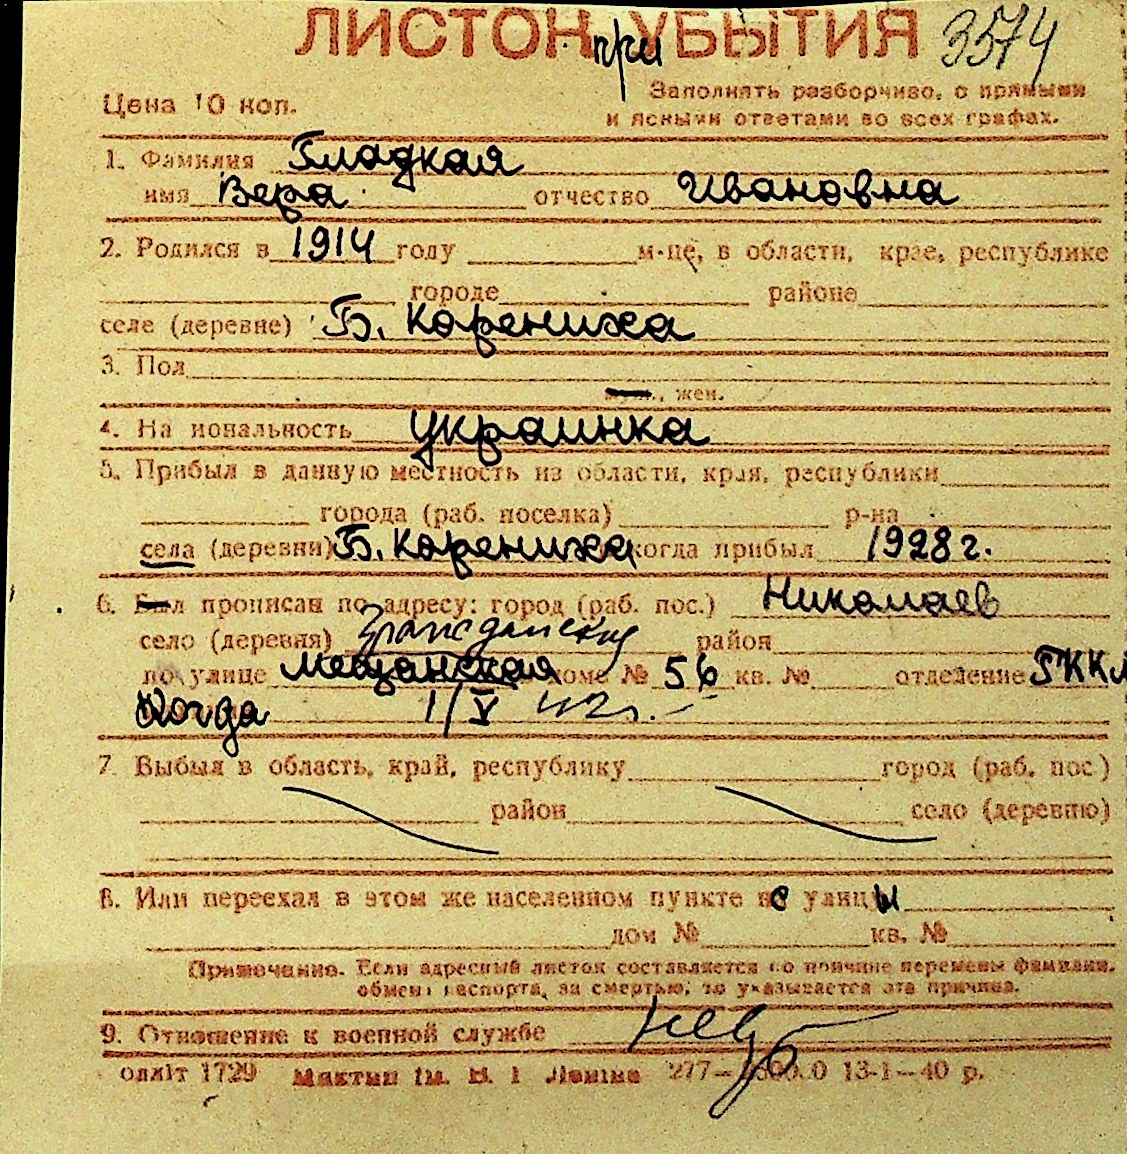 ЛИСТОК при УБЫТИЯ 3574
Цена 10 коп. Заполнять разборчиво, с прямыми
и ясными ответами во всех графах.
1. Фамилия Гладкая
имя Вера отчество Ивановна
2. Родился в 1914 году м-це, в области, крае, республике
городе районе
селе (деревне) Б. Корениха
3. Пол
муж., жен.
4. На иональность украинка
5. Прибыл в данную местность из области, края, республики
города (раб. поселка) р-на
села (деревни) Б. Корениха когда прибыл 1928 г.
6. Был прописан по адресу: город (раб. пос.) Николаев
село (деревня) Гражданская район
по улице Мещанская доме № 56 кв. № отделение ГККМ
Когда 1/V 42 г.
7. Выбыл в область, край, республику город (раб. пос)
район село (деревню)
8. Или переехал в этом же населенном пункте с улицы
дом № кв. №
Примечание. Если адресный листок составляется по причине перемены фамилии,
обмена паспорта, за смертью, то указывается эта причина.
9. Отношение к военной службе
обліт 1729 Миктип ім. В. І Леніна 277— 0 13-1—40 р.